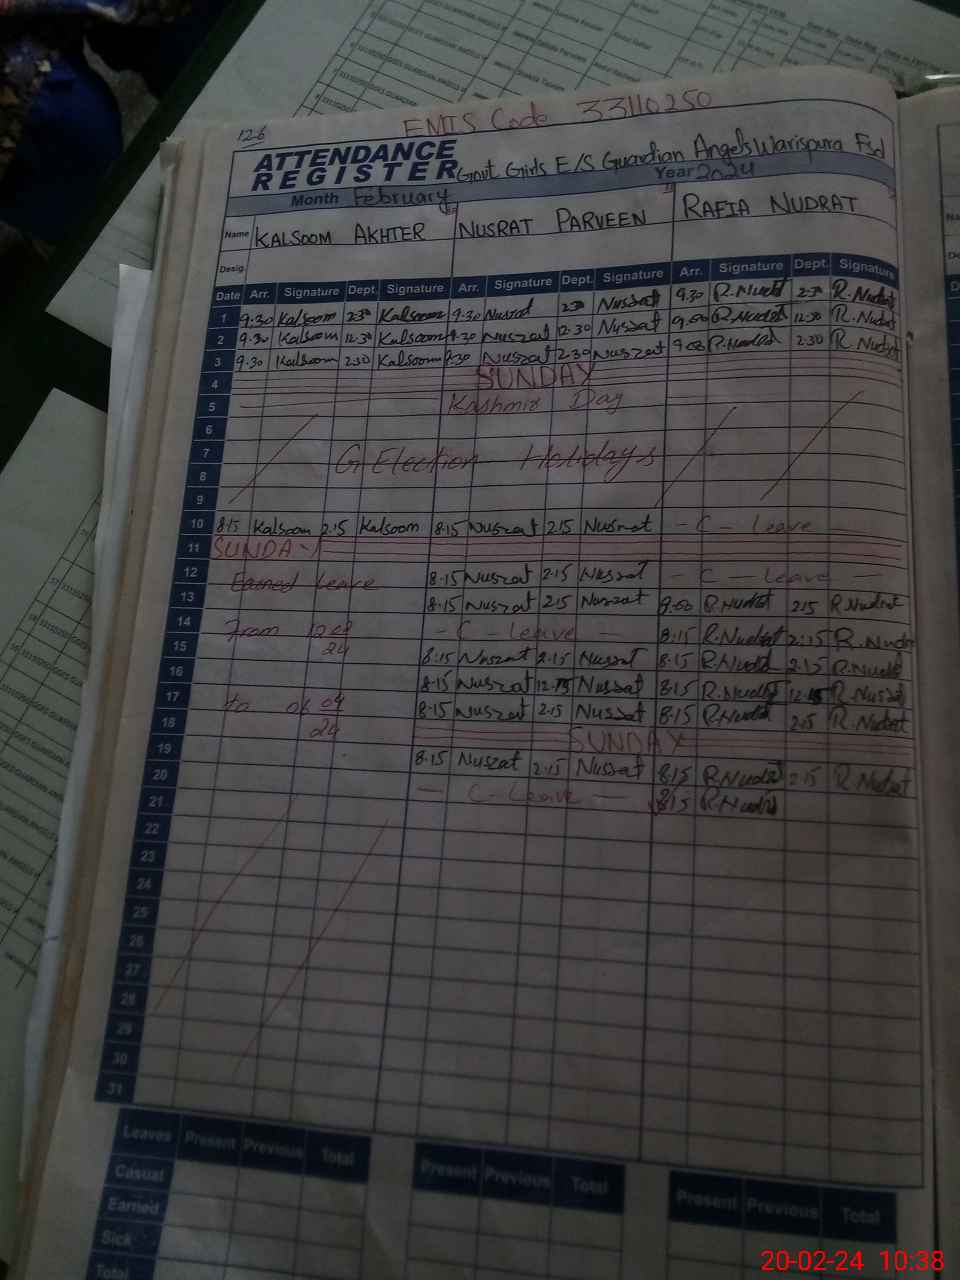 126
EMIS Code 33110250
ATTENDANCE REGISTER
Govt Girls E/S Guardian Angels Warispura Fsd
Month February Year 2024
Name KALSOOM AKHTER NUSRAT PARVEEN RAFIA NUDRAT
Desig.
Date Arr. Signature Dept. Signature Arr. Signature Dept. Signature Arr. Signature Dept. Signature
1 9.30 Kalsoom 2:30 Kalsoom 9.30 Nusrat 2:30 Nusrat 9.30 R.Nudrat 2:30 R.Nudrat
2 9.30 Kalsoom 12.30 Kalsoom 9.30 Nusrat 12.30 Nusrat 9.00 R.Nudrat 12:30 R.Nudrat
3 9.30 Kalsoom 2:30 Kalsoom 9.30 Nusrat 2.30 Nusrat 9.00 R.Nudrat 2:30 R.Nudrat
4 SUNDAY
5 Kashmir Day
6
7 G Election Holidays
8
9
10 8:15 Kalsoom 2.15 Kalsoom 8.15 Nusrat 2.15 Nusrat - C - Leave
11 SUNDAY
12 Earned Leave 8.15 Nusrat 2.15 Nusrat - C - Leave -
13 8.15 Nusrat 2.15 Nusrat 9.00 R.Nudrat 2.15 R.Nudrat
14 From 12 02 24 - C - Leave - 8:15 R.Nudrat 2:15 R.Nudrat
15 8:15 Nusrat 2.15 Nusrat 8.15 R.Nudrat 2.15 R.Nudrat
16 8.15 Nusrat 12.15 Nusrat 8.15 R.Nudrat 12.15
17 to 04 24 8.15 Nusrat 2.15 Nusrat 8.15 R.Nudrat 2.15 R.Nudrat
18 SUNDAY
19 8.15 Nusrat 2.15 Nusrat 8.15 R.Nudrat 2.15 R.Nudrat
20 - C - Leave - 8:15 R.Nudrat
21
22
23
24
25
26
27
28
29
30
31
Leaves Present Previous Total Present Previous Total Present Previous Total
Casual
Earned
Sick
Total
20-02-24 10:38